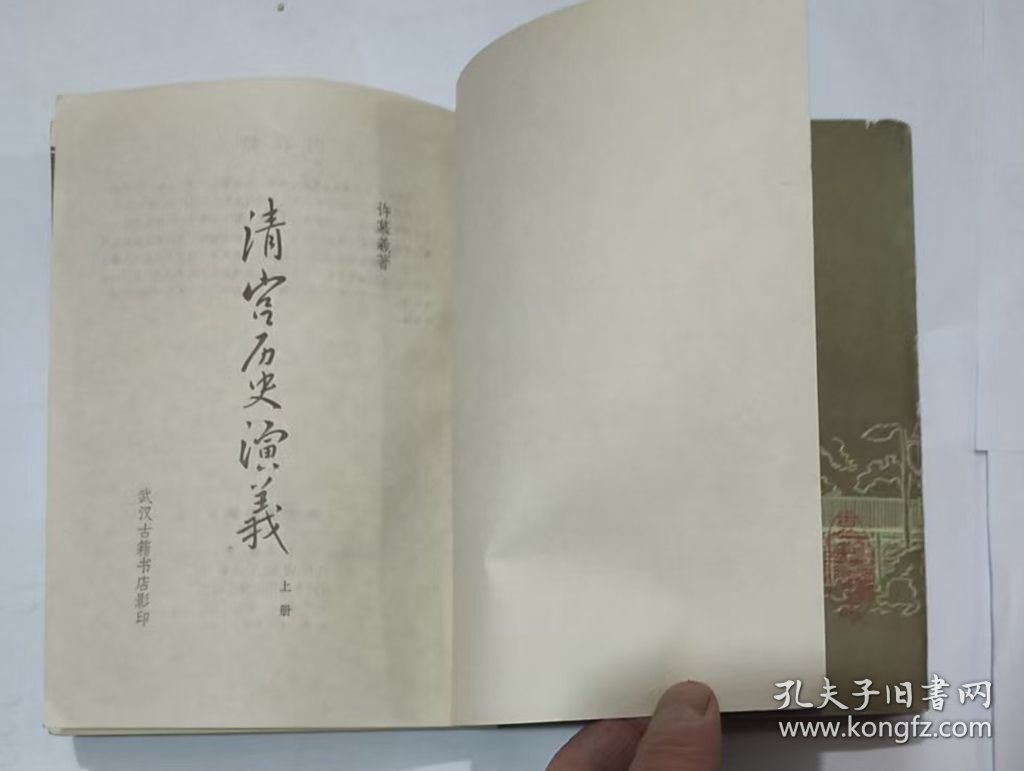 许慕羲著
清宫历史演義
上册
武汉古籍书店影印
孔夫子旧書网
www.kongfz.com